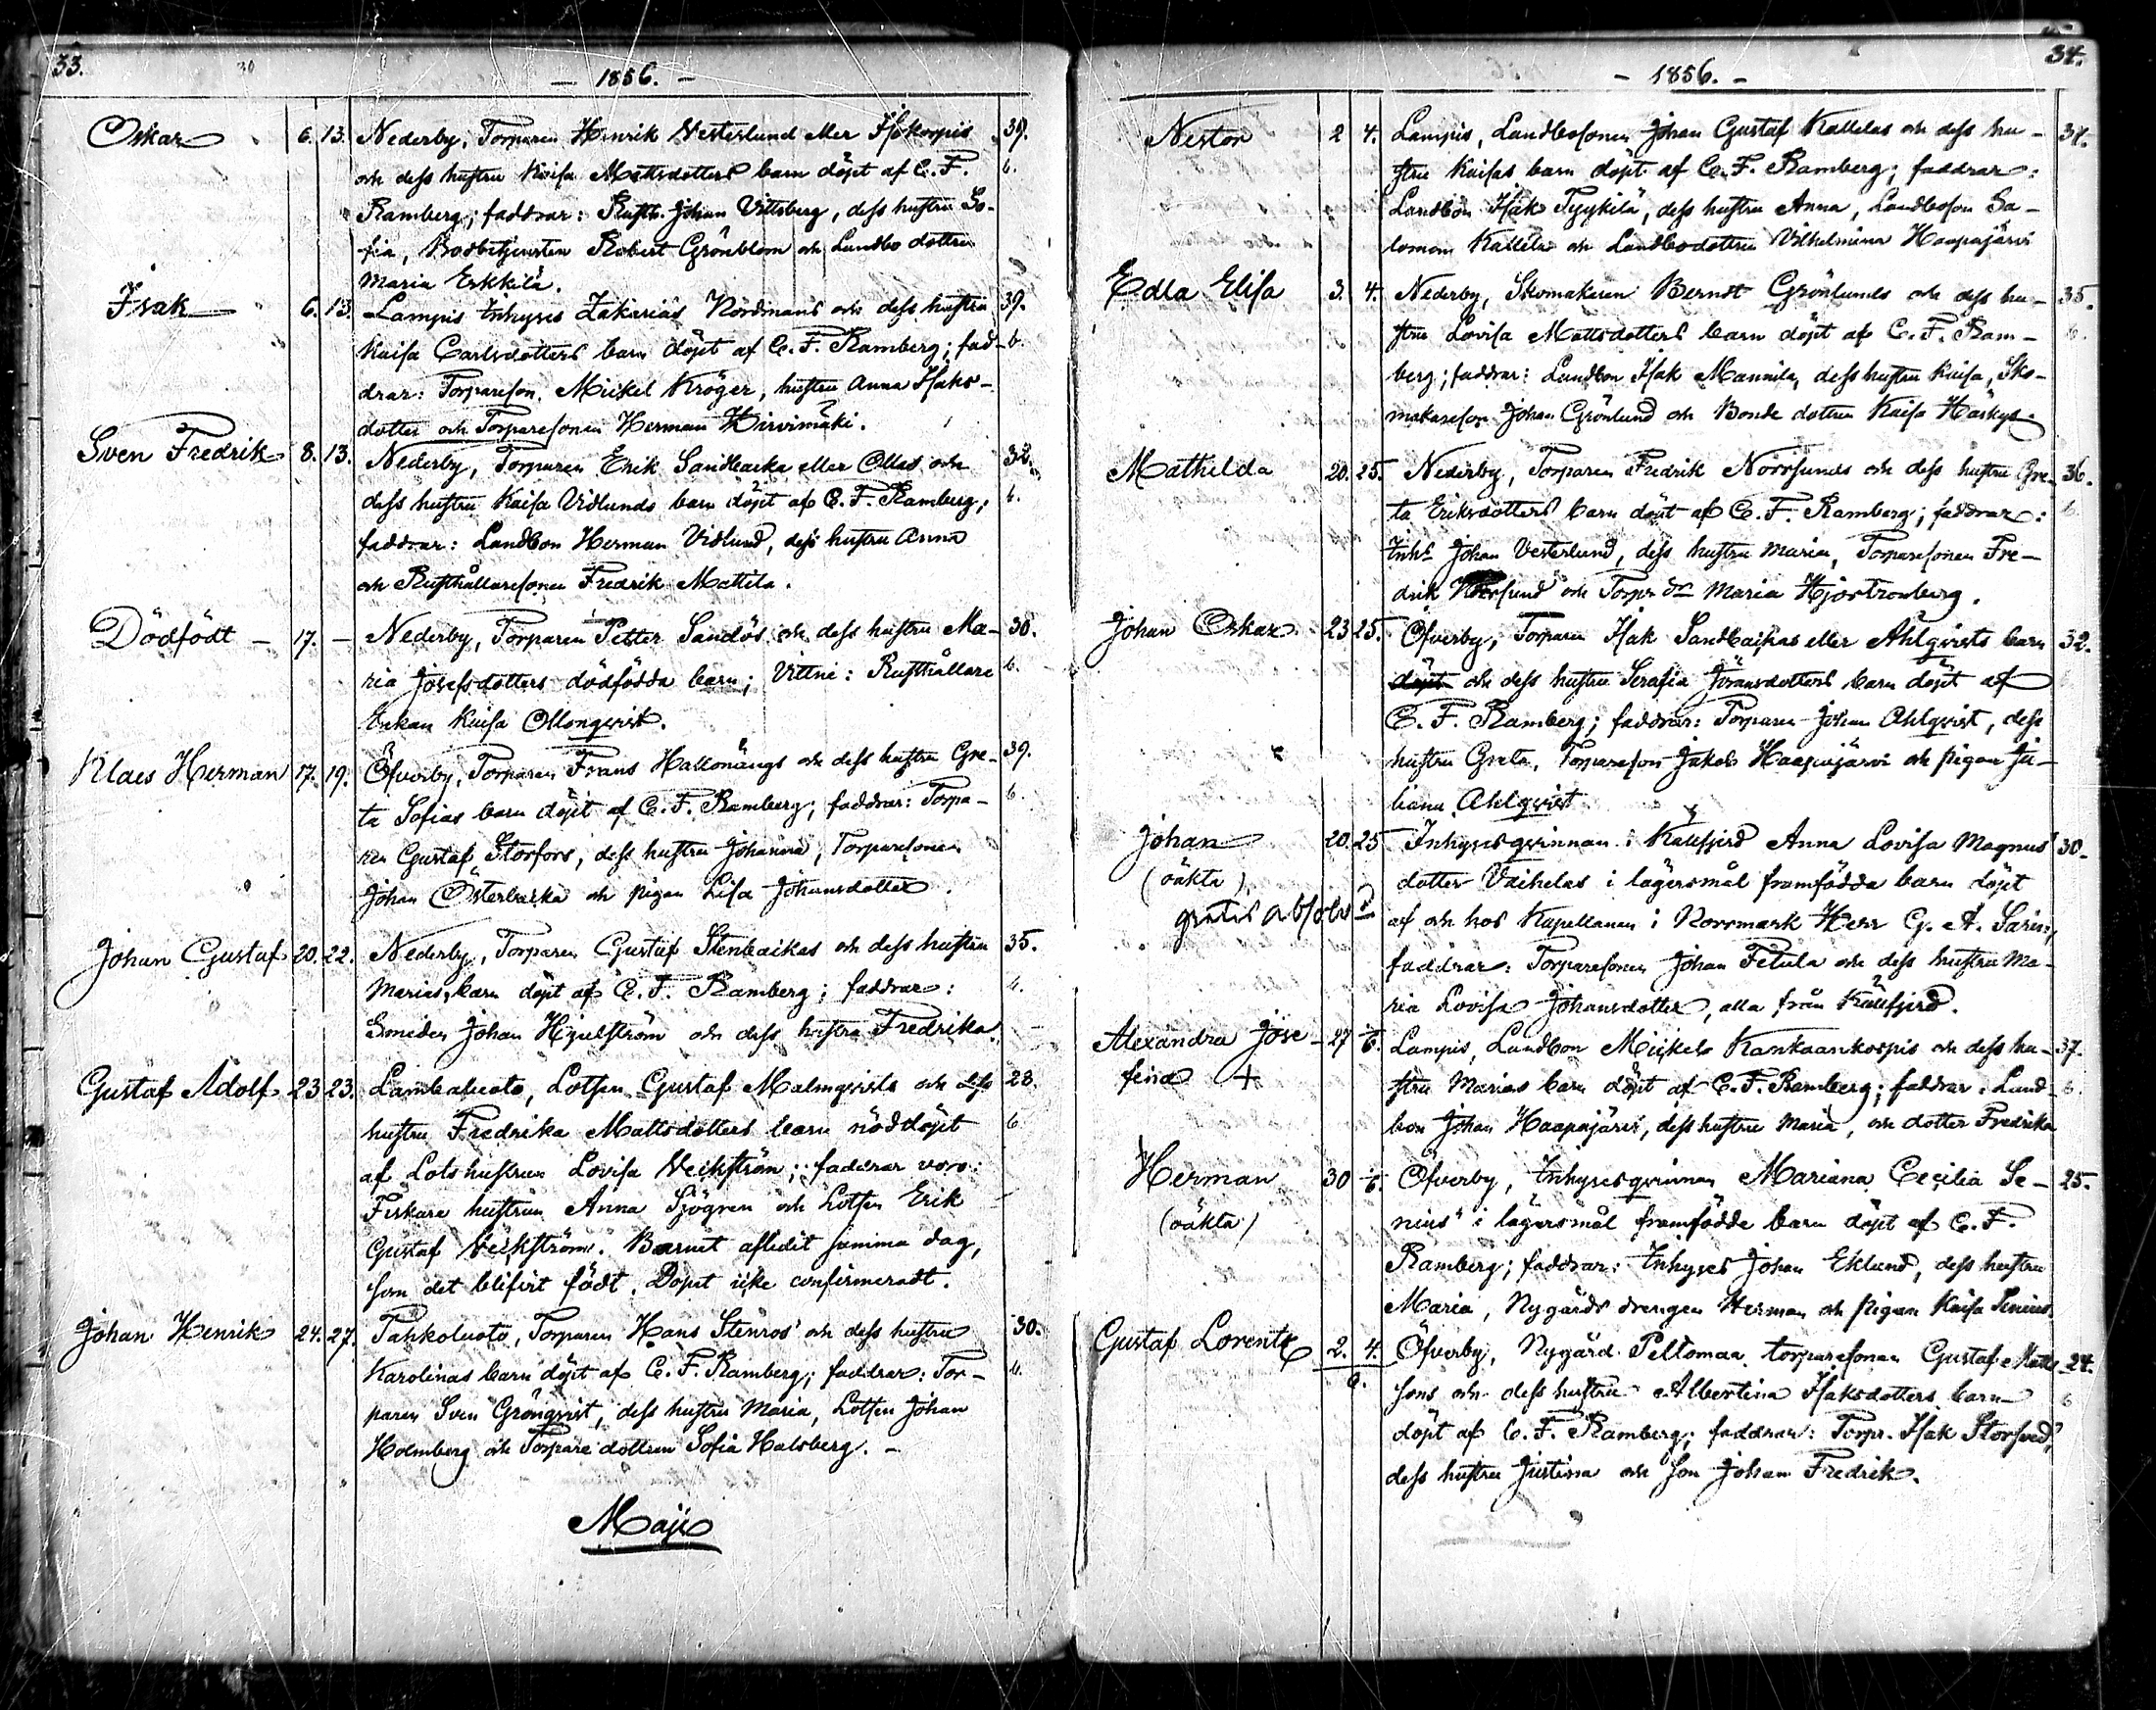 33.
30
— 1856. —
Oskar 6. 13. Nederby, Torparen Henrik Vesterlund eller Isokorpis 39.
och dess hustru Kaisa Mattsdotters barn döpt af C. F. b.
Ramberg; faddrar: Rusth. Johan Vittsberg, dess hustru So-
fia, Bodbetjensten Robert Grönblom och Landbo dottren
Maria Erkkilä.
Isak 6. 13. Lampis Inhyses Zakarias Nordmans och dess hustru 39.
Kaisa Carlsdotters barn döpt af C. F. Ramberg; fad- b.
drar: Torpareson Mickel Kröger, hustru Anna Isaks-
dotter och Torparesonen Herman Hirvimäki.
Sven Fredrik 8. 13. Nederby, Torparen Erik Sandbacka eller Ollas och 32.
dess hustru Kaisa Vidlunds barn döpt af C. F. Ramberg; b.
faddrar: Landbon Herman Vidlund, dess hustru Anna
och Rusthållaresonen Fredrik Mattila.
Dödfödt — 17. — Nederby, Torparen Petter Sandös och dess hustru Ma- 30.
ria Josefsdotters dödfödda barn; Vittne: Rusthållare b.
Enkan Kaisa Ollonqvist.
Klaes Herman 17. 19. Öfverby, Torparen Frans Hallonängs och dess hustru Gre- 39.
ta Sofias barn döpt af C. F. Ramberg; faddrar: Torpa- b.
ren Gustaf Storfors, dess hustru Johanna, Torparesonen
Johan Österbacka och pigan Lisa Johansdotter.
Johan Gustaf 20. 22. Nederby, Torparen Gustaf Stenbackas och dess hustru 35.
Marias barn döpt af C. F. Ramberg; faddrar: b.
Smeden Johan Hjulström och dess hustru Fredrika.
Gustaf Adolf 23 23. Lambaluoto, Lotsen Gustaf Malmqvists och dess 28.
hustru Fredrika Mattsdotters barn nöddöpt b
af Lotshustrun Lovisa Veckström; faddrar voro:
Fiskare hustrun Anna Sjögren och Lotsen Erik
Gustaf Veckström. Barnet afledit samma dag,
som det blifvit födt. Dopet icke confirmeradt.
Johan Henrik 24. 27. Tahkoluoto, Torparen Hans Stenros' och dess hustru 30.
Karolinas barn döpt af C. F. Ramberg; faddrar: Tor- b.
paren Sven Grönqvist, dess hustru Maria, Lotsen Johan
Holmberg och Torpare dottren Sofia Halsberg. —
Maji
34.
— 1856. —
Nestor 2 4. Lampis, Landbosonen Johan Gustaf Kallelas och dess hu- 37.
stru Kaisas barn döpt af C. F. Ramberg; faddrar:
Landbon Isak Tyykilä, dess hustru Anna, Landboson Sa-
lomon Kallela och Landbodottren Vilhelmina Haapajärvi
Edla Elisa 3. 4. Nederby, Skomakeren Berndt Grönlunds och dess hu- 35.
stru Lovisa Mattsdotters barn döpt af C. F. Ram- b.
berg; faddrar: Landbon Isak Mannila, dess hustru Kaisa, Sko-
makareson Johan Grönlund och Bonde dottren Kaisa Härkys.
Mathilda 20. 25. Nederby, Torparen Fredrik Norrsunds och dess hustru Gre- 36.
ta Eriksdotters barn döpt af C. F. Ramberg; faddrar: b.
Inhs Johan Vesterlund, dess hustru Maria, Torparesonen Fre-
drik Norrsund och Torp. dr Maria Hjortronberg.
Johan Oskar 23 25. Öfverby, Torparen Isak Sandbackas eller Ahlqvists barn 32.
döpt och dess hustru Serafia Göransdotters barn döpt af
C. F. Ramberg; faddrar: Torparen Johan Ahlqvist, dess
hustru Greta, Torpareson Jakob Haapajärvi och pigan Ju-
liana Ahlqvist
Johan 20. 25 Inhysesqvinnan i Kallfjerd Anna Lovisa Magnus 30.
(oäkta) dotter Vaihelas i lägersmål framfödda barn döpt
gratis absolv. af och hos Kapellanen i Norrmark Herr G. A. Sarin;
faddrar: Torparesonen Johan Fetula och dess hustru Ma-
ria Lovisa Johansdotter, alla från Kallfjerd.
Alexandra Jose- 27 1/6. Lampis, Landbon Mickels Kankaankorpis och dess hu- 37.
fina + stru Marias barn döpt af C. F. Ramberg; faddrar: Land- b.
bon Johan Haapajärvi, dess hustru Maria, och dotter Fredrika
Herman 30 1/6. Öfverby, Inhysesqvinnan Mariana Cecilia Se- 25.
(oäkta) nius' i lägersmål framfödde barn döpt af C. F.
Ramberg; faddrar: Inhyses Johan Eklund, dess hustru
Maria, Nygårds drengen Herman och pigan Kaisa Senius.
Gustaf Lorents 2. 4. Öfverby, Nygård Peltomaa torparesonen Gustaf Matts 24.
6. sons och dess hustru Albertina Isaksdotters barn b
döpt af C. F. Ramberg; faddrar: Torpr. Isak Storsved,
dess hustru Justina och son Johan Fredrik.